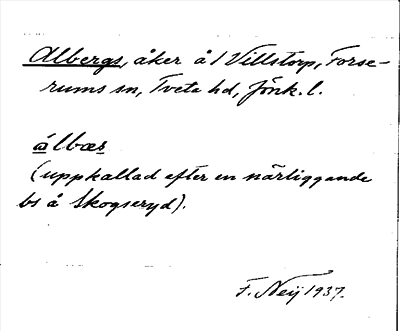 Albergs, åker å 1 Villstorp, Forse-
rums sn, Tveta hd, Jönk. l.
ålbær
(uppkallad efter en närliggande
bs å Skogseryd).
F. Neij 1937.